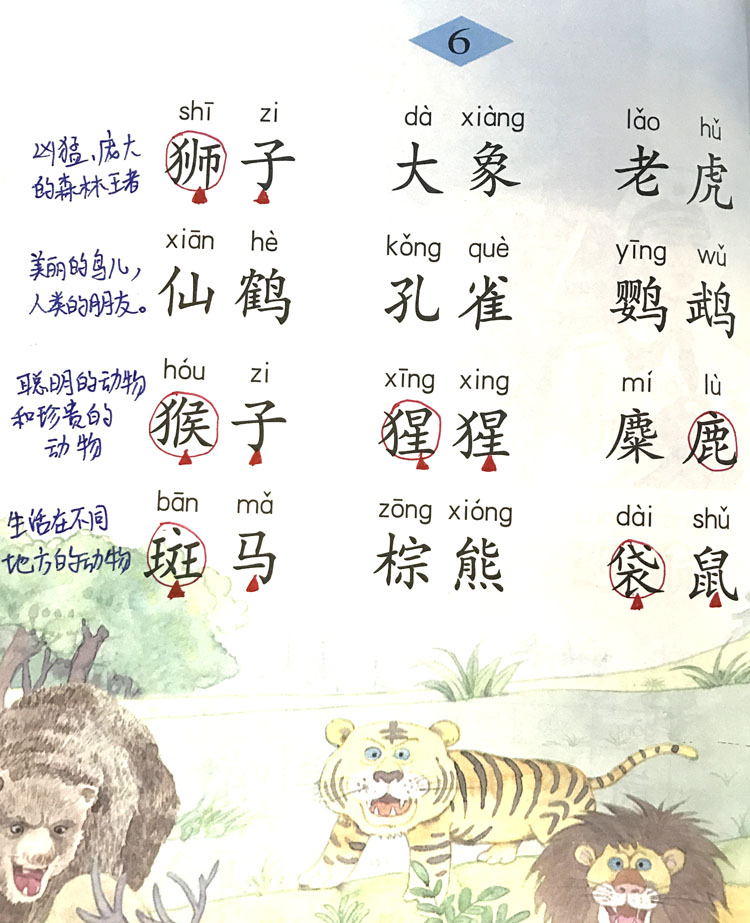 6
shī zi dà xiàng lǎo hǔ
凶猛、庞大
的森林王者
狮子 大象 老虎
xiān hè kǒng què yīng wǔ
美丽的鸟儿，
人类的朋友。
仙鹤 孔雀 鹦鹉
hóu zi xīng xing mí lù
聪明的动物
和珍贵的
动物
猴子 猩猩 麋鹿
bān mǎ zōng xióng dài shǔ
生活在不同
地方的动物
斑马 棕熊 袋鼠